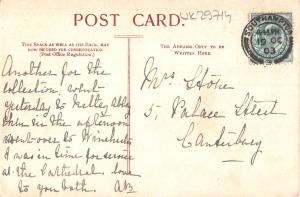 UK29714
POST CARD.
THIS SPACE AS WELL AS THE BACK, MAY
NOW BE USED FOR COMMUNICATION
(Post Office Regulation.)
THE ADDRESS ONLY TO BE
WRITTEN HERE.
SOUTHAMPTON
19 OC
03
Another for the
collection. went
yesterday to Netley Abbey
then in the afternoon
went over to Winchester
I was in time for service
at the Cathedral. love
to you both. AB
Mrs Stone
5, Palace Street
Canterbury